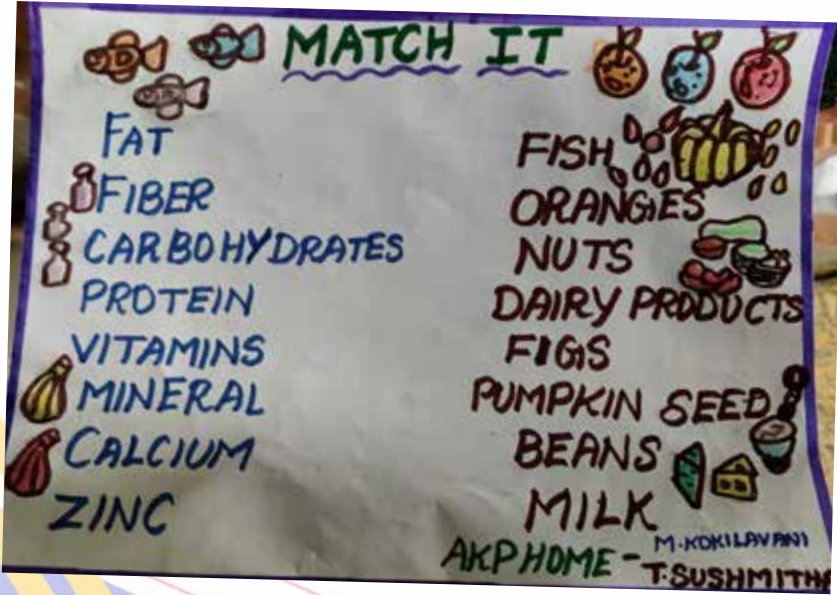 MATCH IT
FAT
FIBER
CARBOHYDRATES
PROTEIN
VITAMINS
MINERAL
CALCIUM
ZINC
FISH
ORANGES
NUTS
DAIRY PRODUCTS
FIGS
PUMPKIN SEED
BEANS
MILK
AKP HOME - M.KOKILAVANI
T.SUSHMITHA